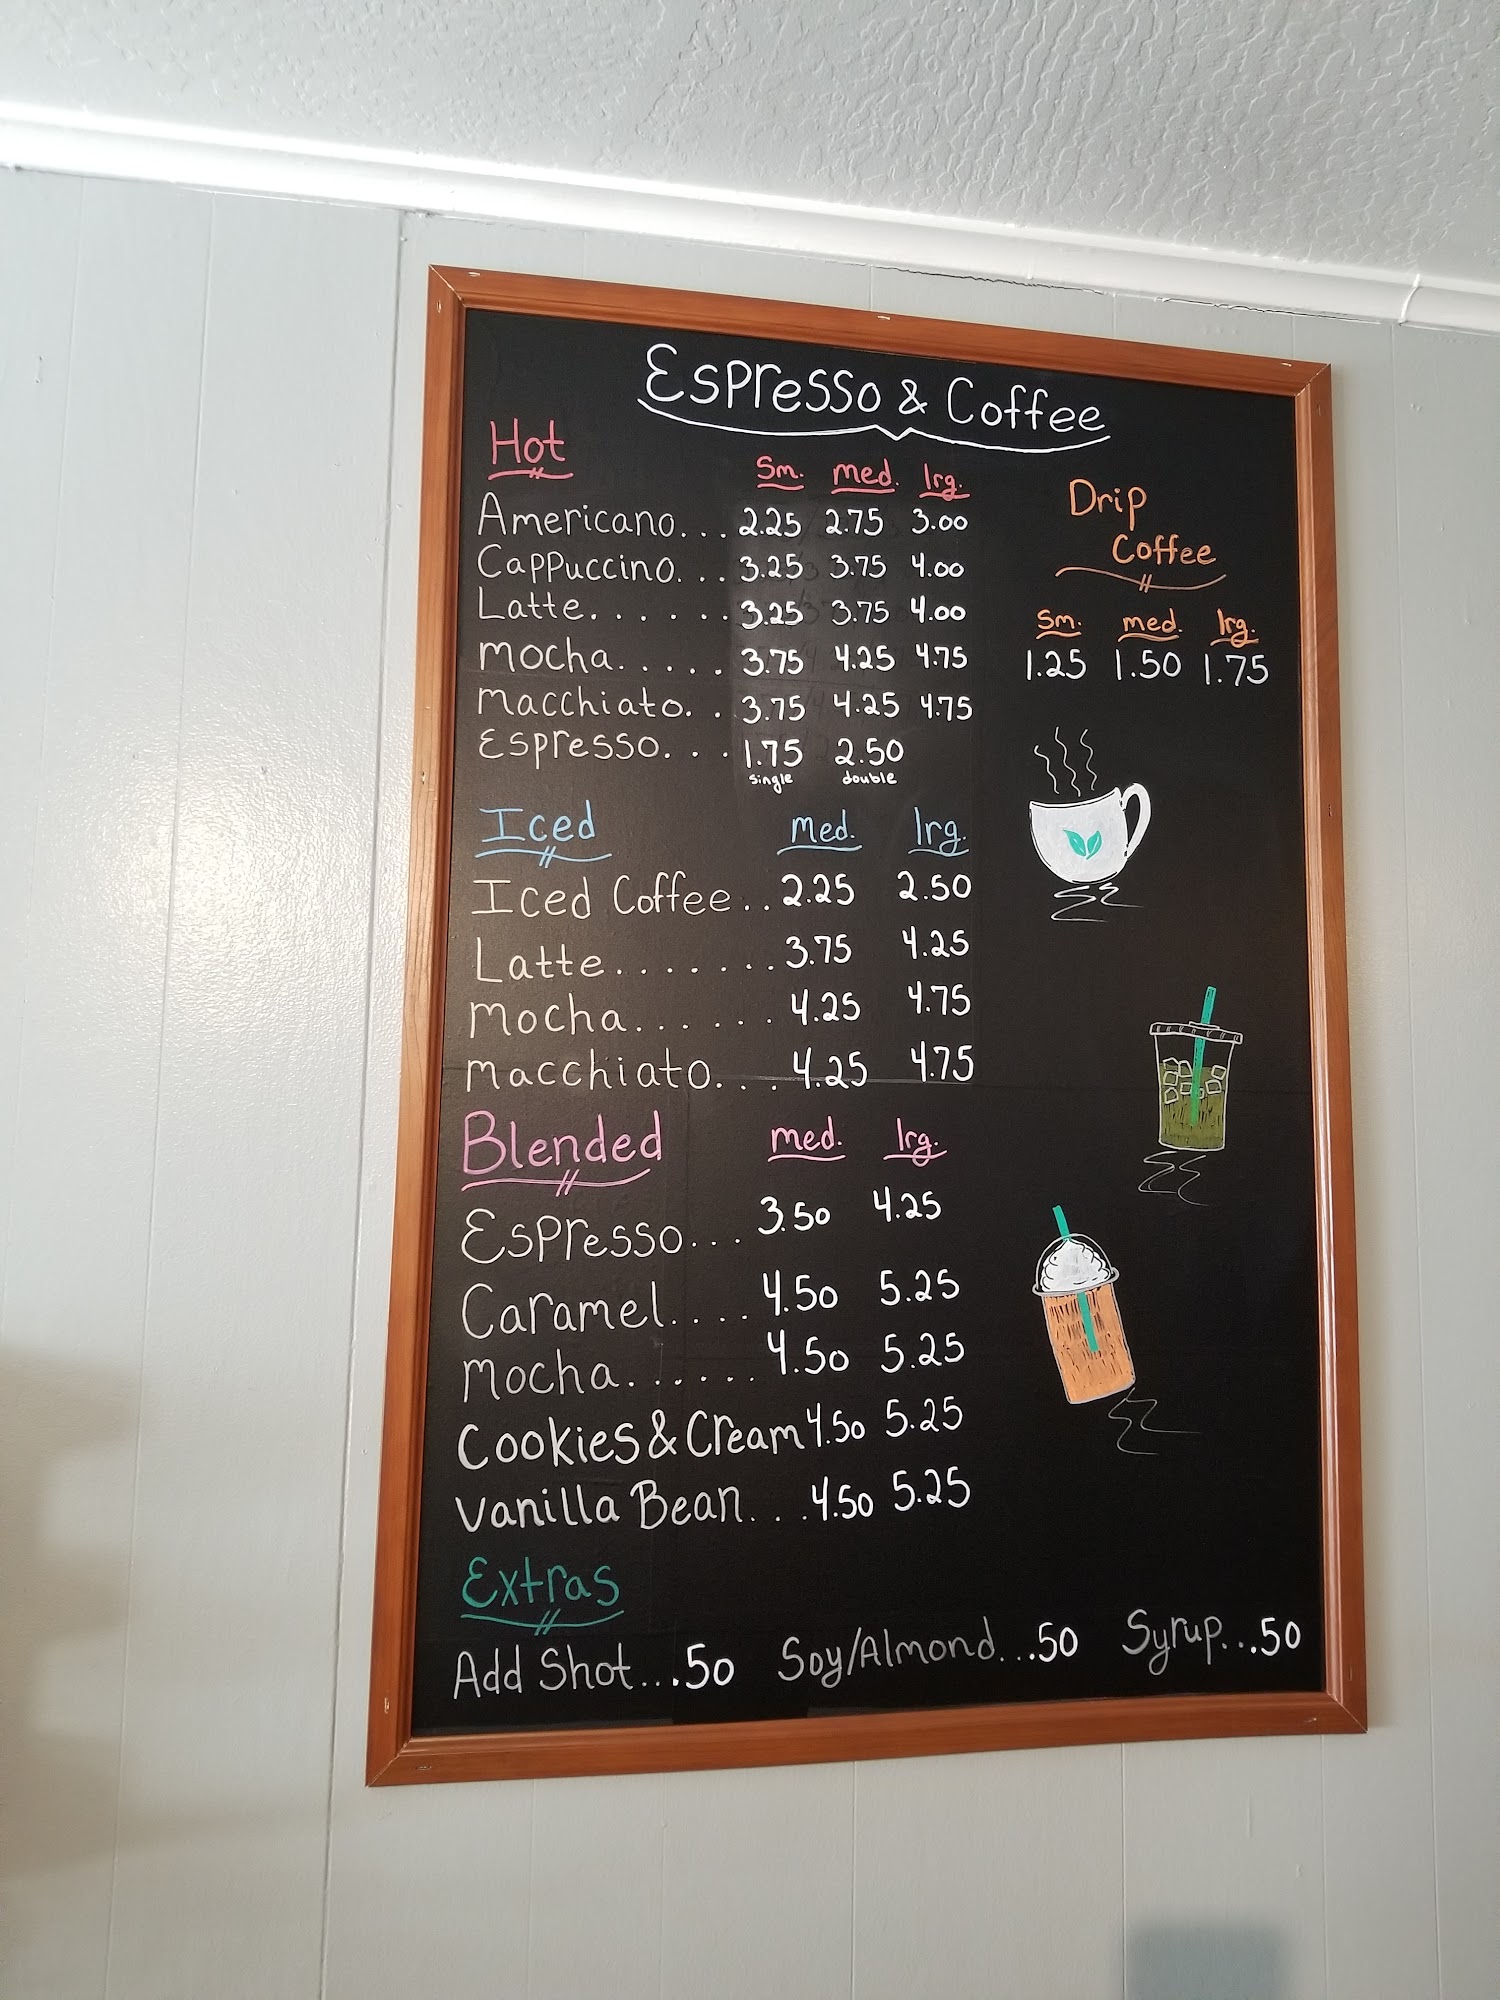 Espresso & Coffee
Hot
Sm. med. lrg.
Americano... 2.25 2.75 3.00
Cappuccino... 3.25 3.75 4.00
Latte...... 3.25 3.75 4.00
mocha..... 3.75 4.25 4.75
macchiato.. 3.75 4.25 4.75
Espresso... 1.75 2.50
single double
Drip
Coffee
Sm. med. lrg.
1.25 1.50 1.75
Iced Med. lrg.
Iced Coffee.. 2.25 2.50
Latte....... 3.75 4.25
mocha...... 4.25 4.75
macchiato... 4.25 4.75
Blended med. lrg.
Espresso... 3.50 4.25
Caramel.... 4.50 5.25
mocha...... 4.50 5.25
Cookies & Cream 4.50 5.25
Vanilla Bean... 4.50 5.25
Extras
Add Shot....50 Soy/Almond....50 Syrup....50